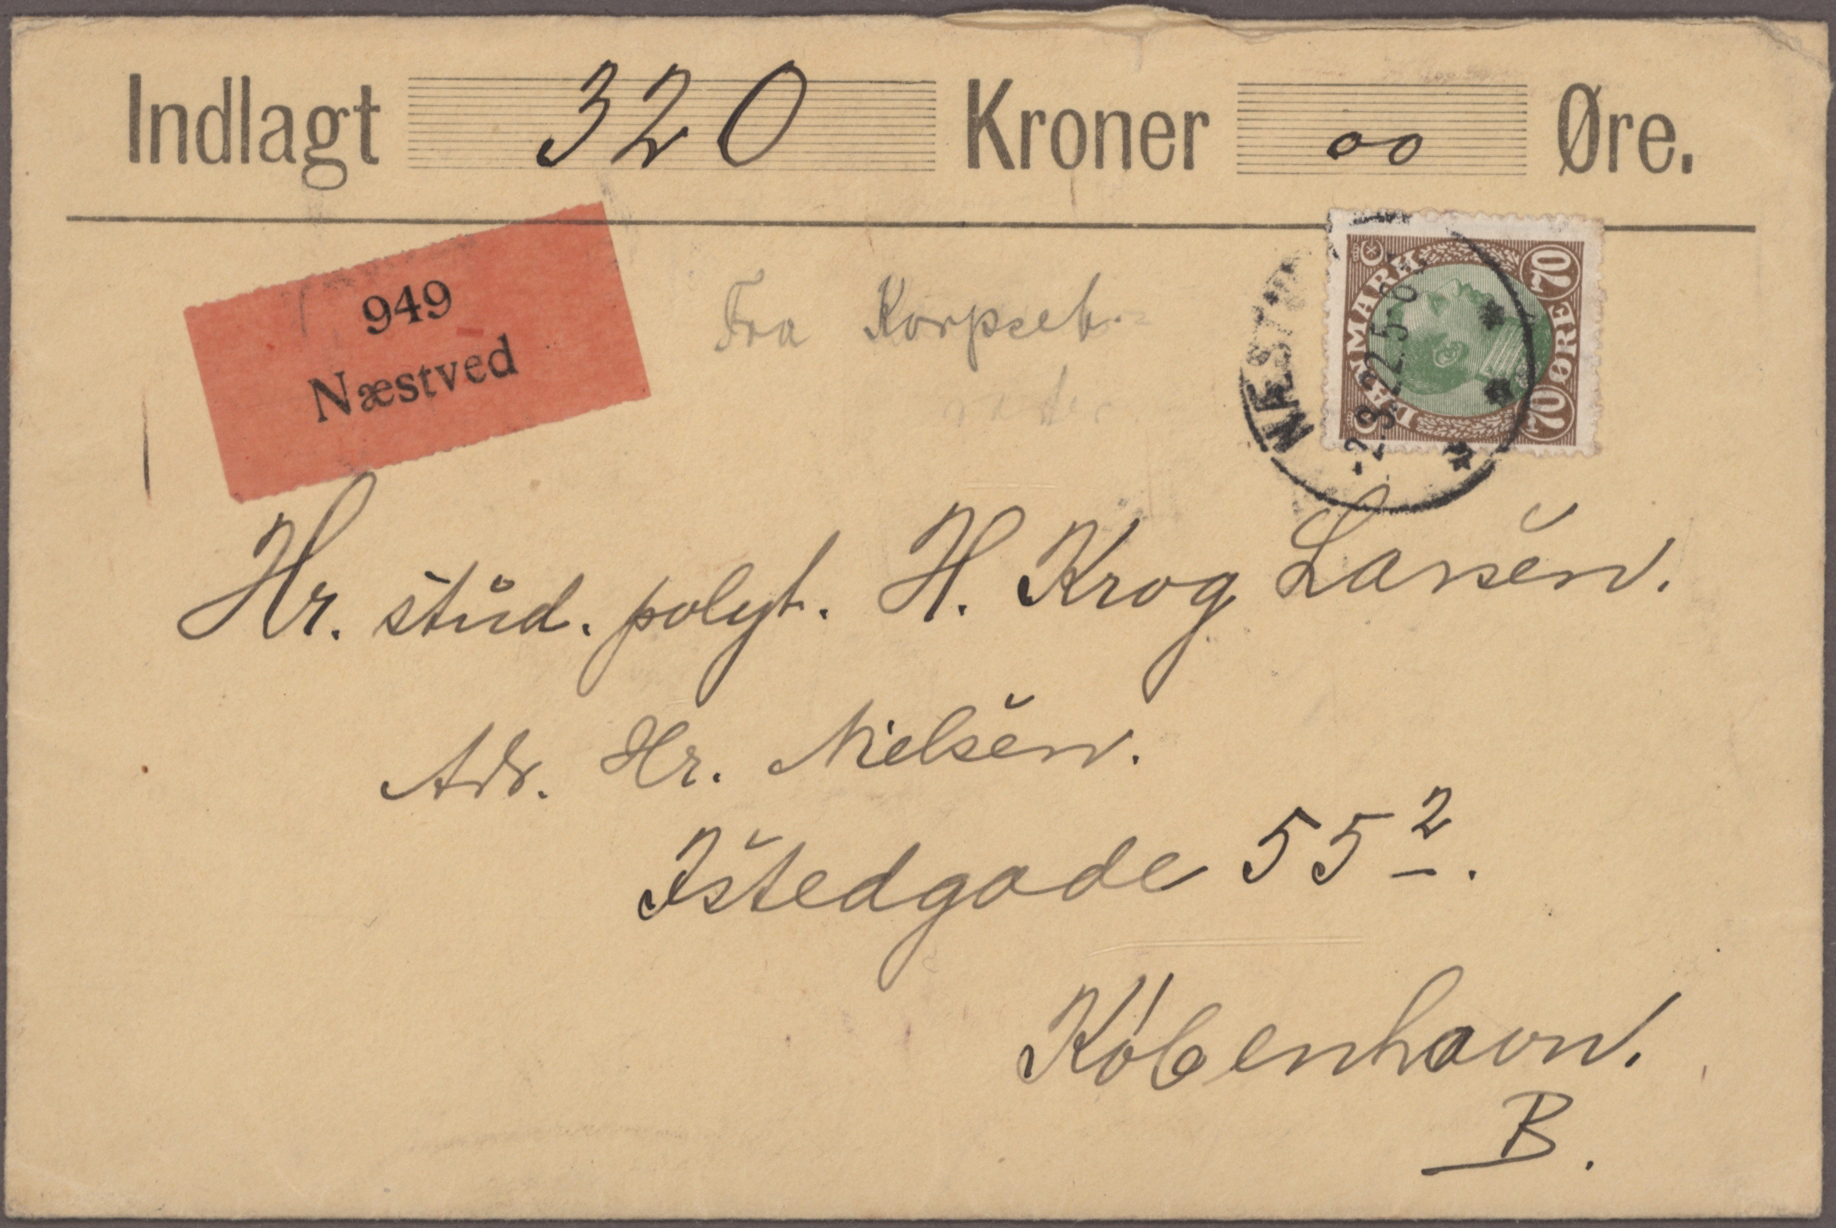 Indlagt 320 Kroner 00 Øre.
949
Næstved
Fra
DANMARK
70 ØRE 70
NÆST
Hr. stud. polyt. H. Krog Larsen.
Adr. Hr. Nielsen.
Istedgade 55 2.
København.
B.